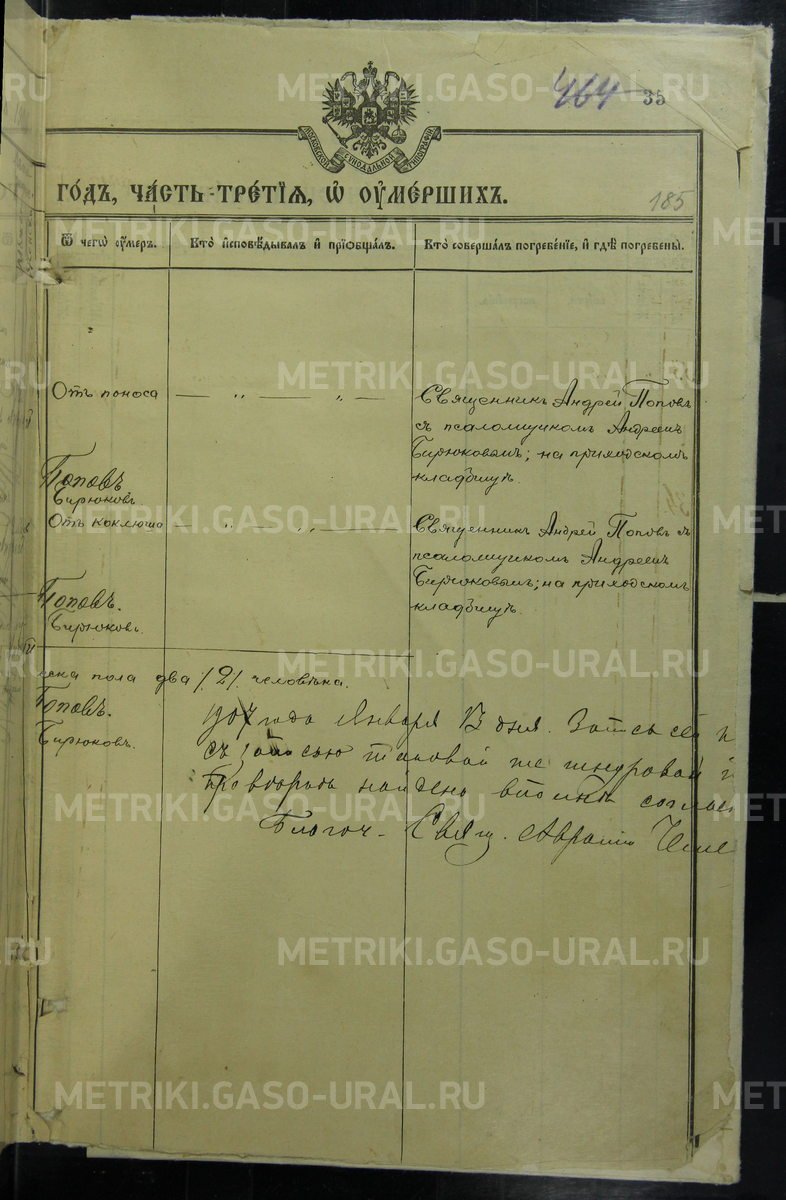 464 35
МОСКОВСКОЙ СѴНОДАЛЬНОЙ ТИПОГРАФІИ
го́дъ, ча́сть тре́тїѧ, ѡ҆ ᲂу҆ме́ршихъ.
185
Ѿ чегѡ̀ ᲂу҆́меръ.
Кто̀ и҆сповѣ́дывалъ и҆ прїѡбща́лъ.
Кто̀ соверша́лъ погребе́нїе, и҆ гдѣ̀ погребены̀.
Отъ поноса — „ — — „ —
Священникъ Андрей Поповъ
съ псаломщикомъ Андреемъ
Бирюковымъ; на приходскомъ
кладбищѣ.
Поповъ
Бирюковъ
Отъ коклюша — „ — — „ —
Священникъ Андрей Поповъ съ
псаломщикомъ Андреемъ
Бирюковымъ; на приходскомъ
кладбищѣ.
Поповъ.
Бирюковъ.
пола два /2/ человѣка.
Поповъ.
Бирюковъ.
1907 года Января 13 дня. Запись сей
съ записью таковой же шнуровой
найдена вполнѣ соглас
Благоч. Свящ.
METRIKI.GASO-URAL.RU